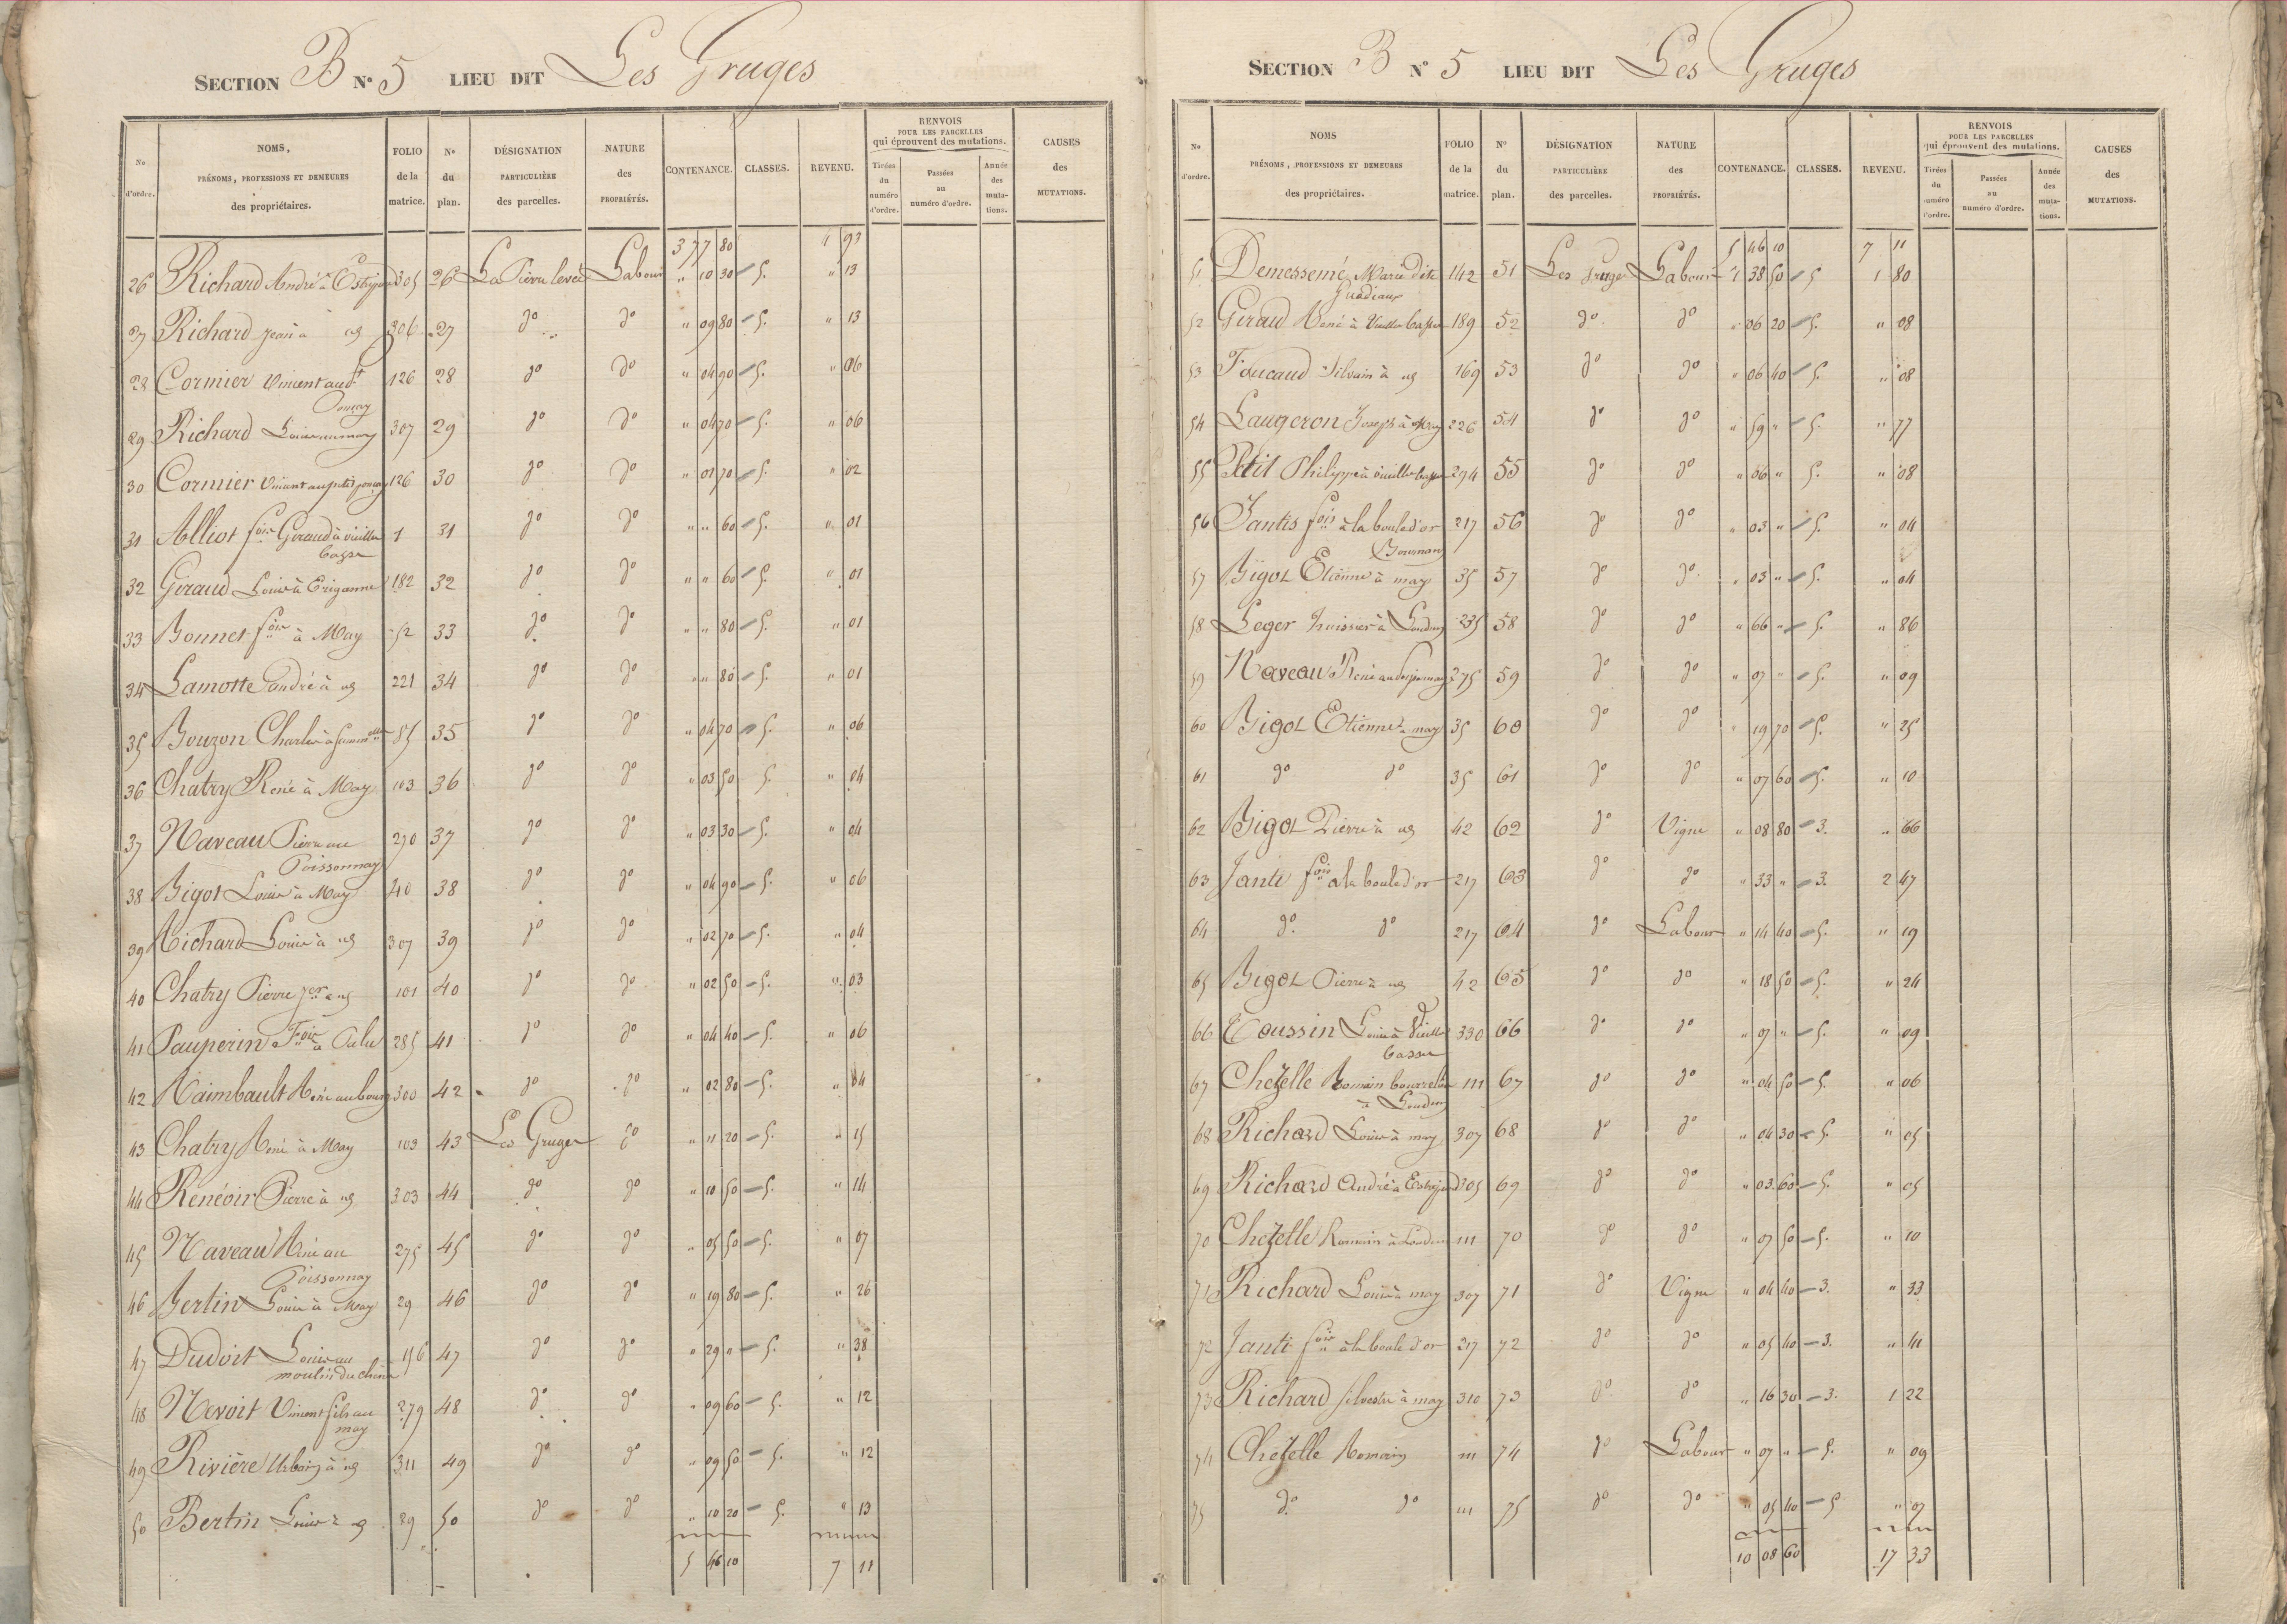 SECTION B N° 5 LIEU DIT Les Gruges
No d'ordre. NOMS, PRÉNOMS, PROFESSIONS ET DEMEURES des propriétaires. FOLIO de la matrice. N° du plan. DÉSIGNATION PARTICULIÈRE des parcelles. NATURE des PROPRIÉTÉS. CONTENANCE. CLASSES. REVENU. RENVOIS POUR LES PARCELLES qui éprouvent des mutations. Tirées du numéro d'ordre. Passées au numéro d'ordre. Année des mutations. CAUSES des MUTATIONS.
3 77 80 4 93
26 Richard André à 305 26 La Pierre levée Labour " 10 30 5. " 13
27 Richard Jean à 306 27 do do " 09 80 5. " 13
28 Cormier Vincent 126 28 do do " 04 90 5. " 06
29 Richard Louis 307 29 do do " 04 70 5. " 06
30 Cormier Vincent 126 30 do do " 01 70 5. " 02
31 Alliot fois Giraud à vieille 1 31 do do " " 60 5. " 01
basse
32 Giraud Louis à 182 32 do do " " 60 5. " 01
33 Bonnet fois à May 52 33 do do " " 80 5. " 01
34 Lamotte andré à 221 34 do do " " 80 5. " 01
35 Bouzon Charles à 85 35 do do " 04 70 5. " 06
36 Chatry René à May 103 36 do do " 03 50 5. " 04
37 Naveau Pierre au 270 37 do do " 03 30 5. " 04
Poissonnay
38 Bigot Louis à May 40 38 do do " 04 90 5. " 06
39 Richard Louis à 307 39 do do " 02 70 5. " 04
40 Chatry Pierre 101 40 do do " 02 50 5. " 03
41 Pauperin Fois à 285 41 do do " 04 40 5. " 06
42 Raimbault René au bourg 300 42 do do " 02 80 5. " 04
43 Chatry René à May 103 43 Les Gruges do " 11 20 5. " 15
44 Renéoir Pierre à 303 44 do do " 10 50 5. " 14
45 Naveau René au 275 45 do do " 05 50 5. " 07
Poissonnay
46 Bertin Louis à May 29 46 do do " 19 80 5. " 26
47 Dudoit Louis au 156 47 do do " 29 " 5. " 38
moulin du chêne
48 Nevoit Vincent fils au 279 48 do do " 09 60 5. " 12
may
49 Rivière Urbain à 311 49 do do " 09 50 5. " 12
50 Bertin Louis à 29 50 do do " 10 20 5. " 13
5 46 10 7 11
SECTION B N° 5 LIEU DIT Les Gruges
No d'ordre. NOMS PRÉNOMS, PROFESSIONS ET DEMEURES des propriétaires. FOLIO de la matrice. N° du plan. DÉSIGNATION PARTICULIÈRE des parcelles. NATURE des PROPRIÉTÉS. CONTENANCE. CLASSES. REVENU. RENVOIS POUR LES PARCELLES qui éprouvent des mutations. Tirées du numéro d'ordre. Passées au numéro d'ordre. Année des mutations. CAUSES des MUTATIONS.
5 46 10 7 11
51 Demessemé Marie dite 142 51 Les Gruges Labour 1 38 50 5 1 80
52 Giraud René à Vieille basse 189 52 do do " 06 20 5. " 08
53 Foucaud Silvain à 169 53 do do " 06 40 5. " 08
54 Laugeron Joseph à May 226 54 do do " 59 " 5. " 77
55 Petit Philippe à vieille basse 294 55 do do " 06 " 5. " 08
56 Jantis fois à la boule d'or 217 56 do do " 03 " 5. " 04
57 Bigot Etienne à may 35 57 do do " 03 " 5. " 04
58 Leger huissier à Loudun 235 58 do do " 66 " 5. " 86
59 Naveau René au 275 59 do do " 07 " 5. " 09
60 Bigot Etienne à may 35 60 do do " 19 70 5. " 25
61 do do 35 61 do do " 07 60 5. " 10
62 Bigot Pierre à 42 62 do Vigne " 08 80 3. " 66
63 Janti fois à la boule d'or 217 63 do do " 33 " 3. 2 47
64 do do 217 64 do Labour " 14 40 5. " 19
65 Bigot Pierre à 42 65 do do " 18 50 5. " 24
66 Toussin Louis à Vieille 330 66 do do " 07 " 5. " 09
basse
67 Chezelle Romain bourrelier 111 67 do do " 04 50 5. " 06
à Loudun
68 Richard Louis à may 307 68 do do " 04 30 5. " 05
69 Richard André à 305 69 do do " 03 60 5. " 05
70 Chezelle Romain à Loudun 111 70 do do " 07 50 5. " 10
71 Richard Louis à may 307 71 do Vigne " 04 40 3. " 33
72 Janti fois à la boule d'or 217 72 do do " 05 40 3. " 41
73 Richard Silvestre à may 310 73 do do " 16 30 3. 1 22
74 Chezelle Romain 111 74 do Labour " 07 " 5. " 09
75 do do 111 75 do do " 05 40 5 " 07
10 08 60 17 33